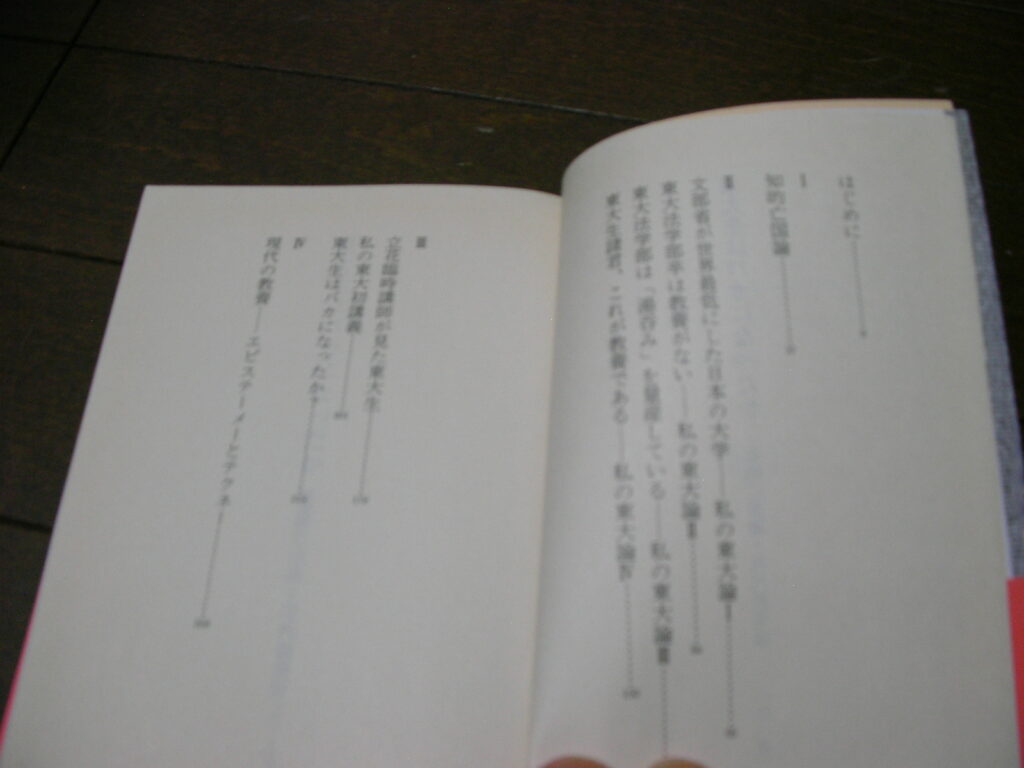 はじめに
I
知的亡国論
II
文部省が世界最低にした日本の大学——私の東大論I
東大法学部卒は教養がない——私の東大論II
東大法学部は「湯呑み」を量産している——私の東大論III
東大生諸君、これが教養である——私の東大論IV
III
立花臨時講師が見た東大生
私の東大初講義
東大生はバカになったか
IV
現代の教養——エピステーメーとテクネー